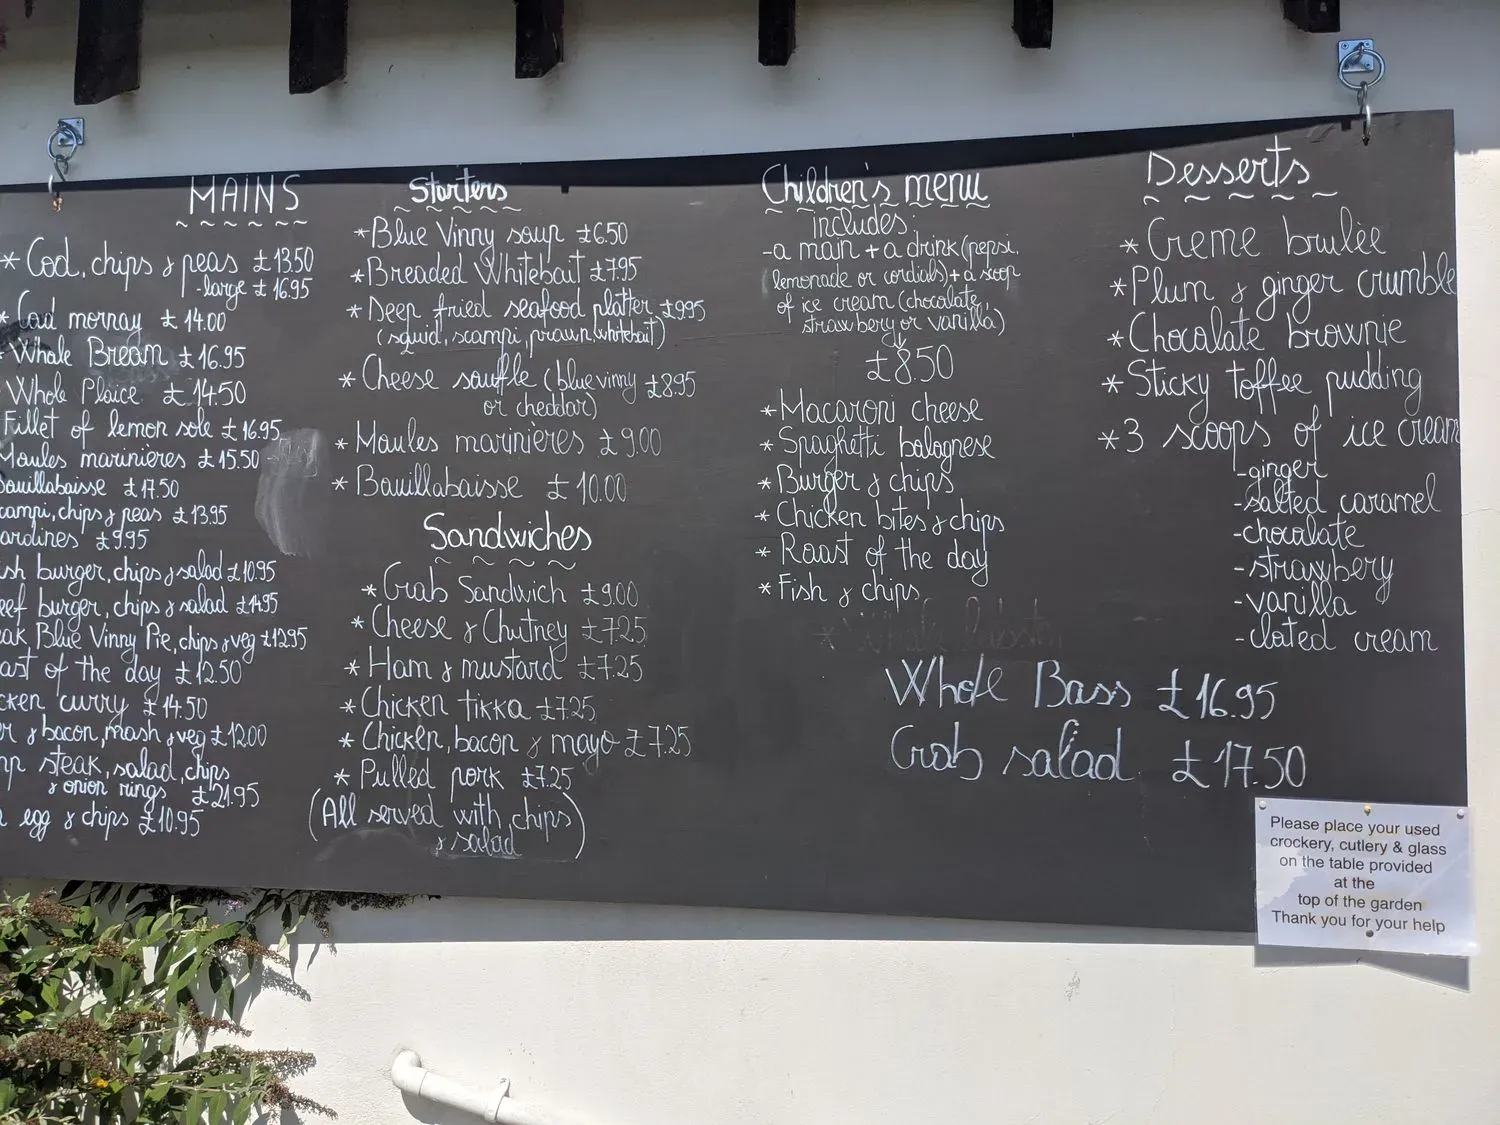 MAINS
* Cod, chips & peas £13.50
-large £16.95
* Cod mornay £14.00
* Whole Bream £16.95
* Whole Plaice £14.50
Fillet of lemon sole £16.95
Moules marinières £15.50
Bouillabaisse £17.50
campi, chips & peas £13.95
ardines £9.95
sh burger, chips & salad £10.95
eef burger, chips & salad £14.95
eak Blue Vinny Pie, chips & veg £12.95
ast of the day £12.50
cken curry £14.50
r & bacon, mash & veg £12.00
mp steak, salad, chips
& onion rings £21.95
egg & chips £10.95
Starters
* Blue Vinny soup £6.50
* Breaded Whitebait £7.95
* Deep fried seafood platter £9.95
(squid, scampi, prawn, whitebait)
* Cheese soufle (blue vinny £8.95
or cheddar)
* Moules marinières £9.00
* Bouillabaisse £10.00
Sandwiches
* Crab Sandwich £9.00
* Cheese & Chutney £7.25
* Ham & mustard £7.25
* Chicken tikka £7.25
* Chicken, bacon & mayo £7.25
* Pulled pork £7.25
(All served with chips
& salad)
Children's menu
includes:
-a main + a drink (pepsi,
lemonade or cordials) + a scoop
of ice cream (chocolate,
strawbery or vanilla)
£8.50
* Macaroni cheese
* Spaghetti bolognese
* Burger & chips
* Chicken bites & chips
* Roast of the day
* Fish & chips
Desserts
* Creme brulée
* Plum & ginger crumble
* Chocolate brownie
* Sticky toffee pudding
* 3 scoops of ice cream
-ginger
-salted caramel
-chocolate
-strawbery
-vanilla
-cloted cream
Whole Bass £16.95
Crab salad £17.50
Please place your used
crockery, cutlery & glass
on the table provided
at the
top of the garden
Thank you for your help